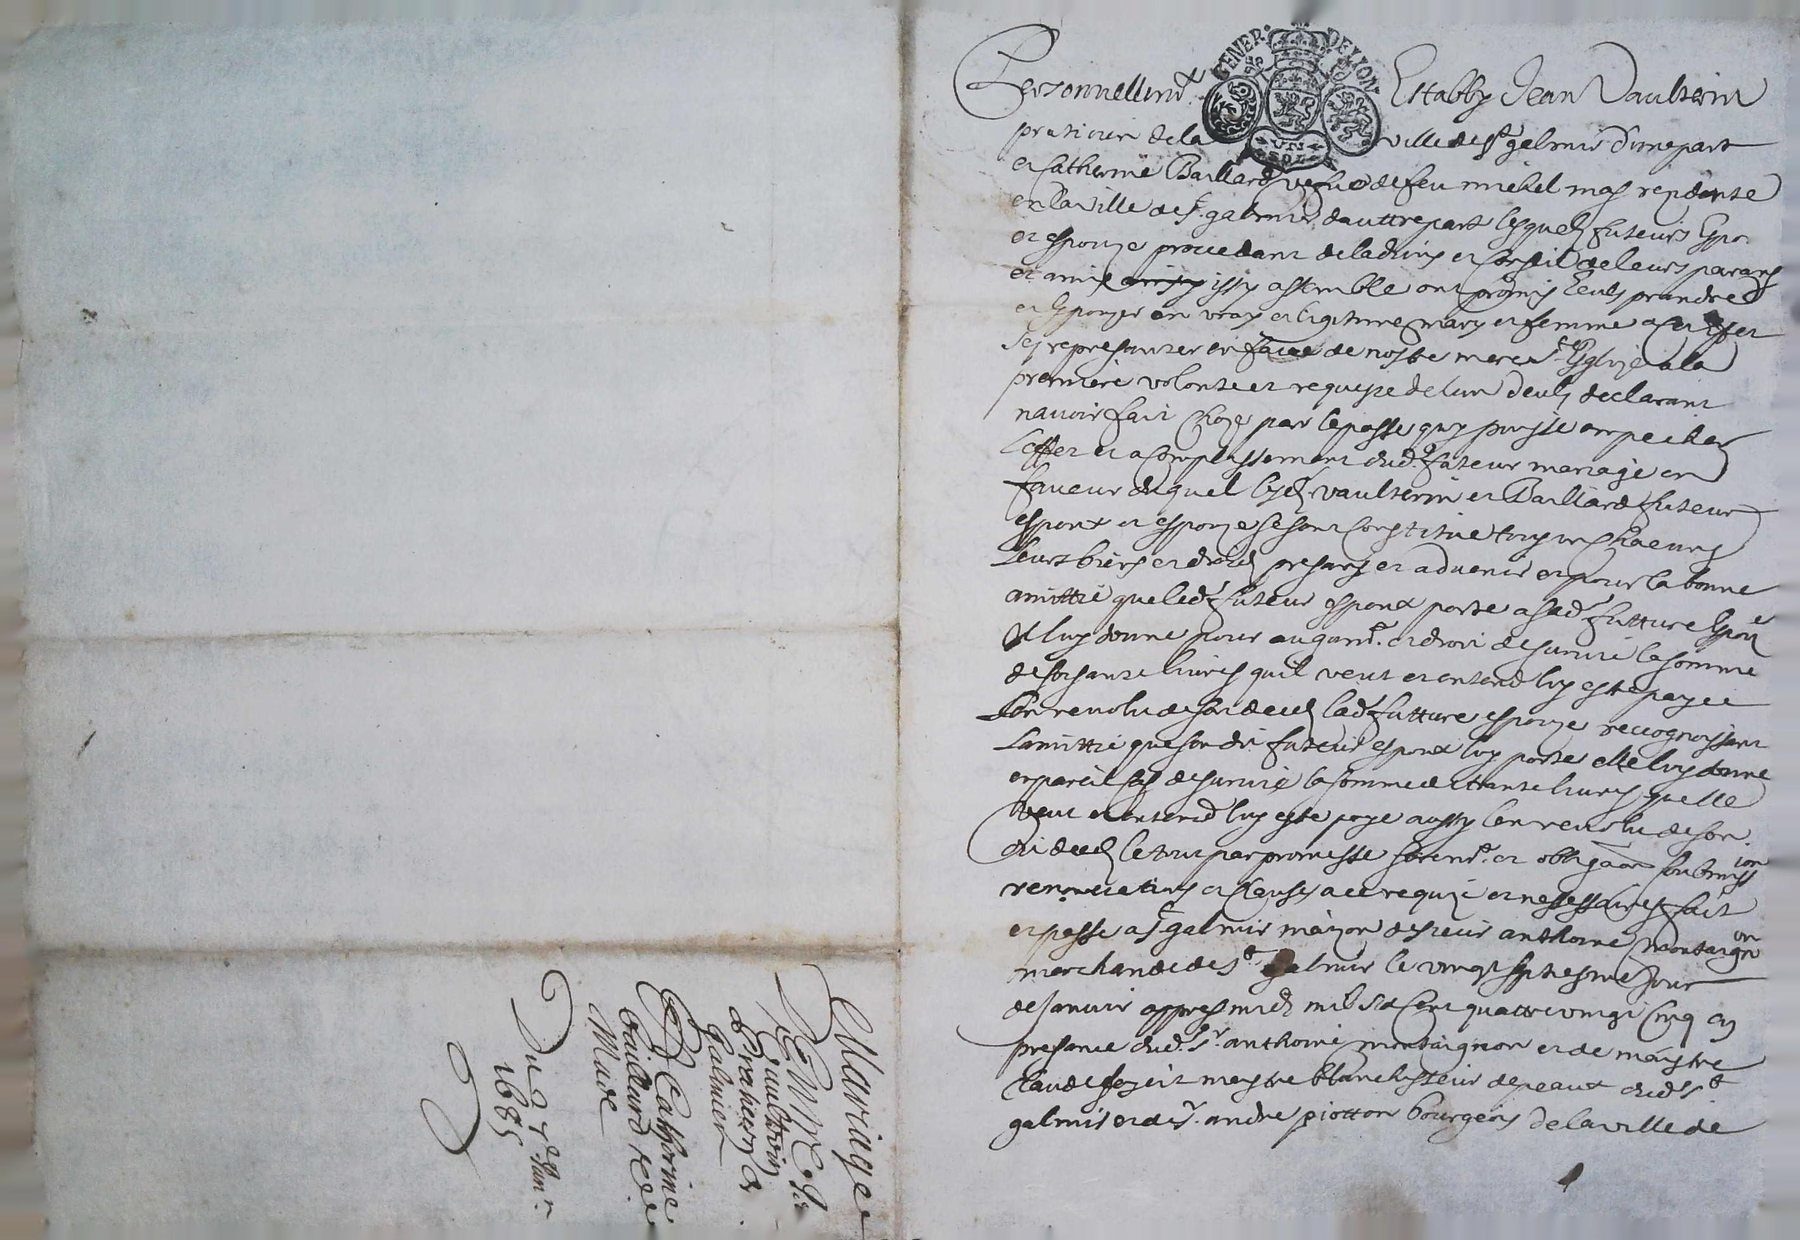 GENER. DE LION
UN
SOL
Personnellemt. Estably Jean Vaulterin
praticien de la ville de St galmier d'une part
et Catherine Baillard vefue de feu michel mas residente
en la ville de St. galmier dauttre part lesquels futeurs Espo.
et espouze procedant de ladvis et Conseil de leurs parans
et amis issy assemble ont promis se prandre
et Espouzer en vray et legitime mary et femme a cet effet
se representer en face de nostre mere Ste Esglize a la
premiere volonte et requeste de lun deulx declarant
navoir fait choze par le passe quy puisse empecher
Leffet et acomplissement dud. futeur mariage en
faveur duquel lesd. vaulterin et Baillard futeur
espoux et espouze se sont Constitue tous un chacuns
Leurs biens et droits presans et advenir et pour la bonne
amittie que led. futeur espoux porte a sad. futture Espouze
Il luy donne pour augmt. et droit de survie la somme
de soisante livres quil veut et entend luy estre payee
Lan revolu de son deces lad. futture espouze recognoissant
Lamittie que son dit futeur espoux luy porte elle luy donne
en pareil cas de survie la somme de trante livres quelle
Veut et entend luy estre paye aussy lan revolu de son
dit deces le tout par promesse seremt. et obligaon soubmission
renonciations et clauses a ce requis et nessessaires fait
et passe a St galmier maizon de sieur anthoine montaignon
merchand de St galmier le vingt septiesme Jour
de Janvier appres midy mil six Cent quattre vingt Cinq en
presance dud. Sr. anthoine montaignon et de maistre
Claude maystre blanchisseur de peaux dud St
galmier et de Sr. andre piotton bourgeois de la ville de
Mariage
Vaultrin
Praticien a
St Galmier
Et Catherine
bailliard
Du 27e Janr.
1685